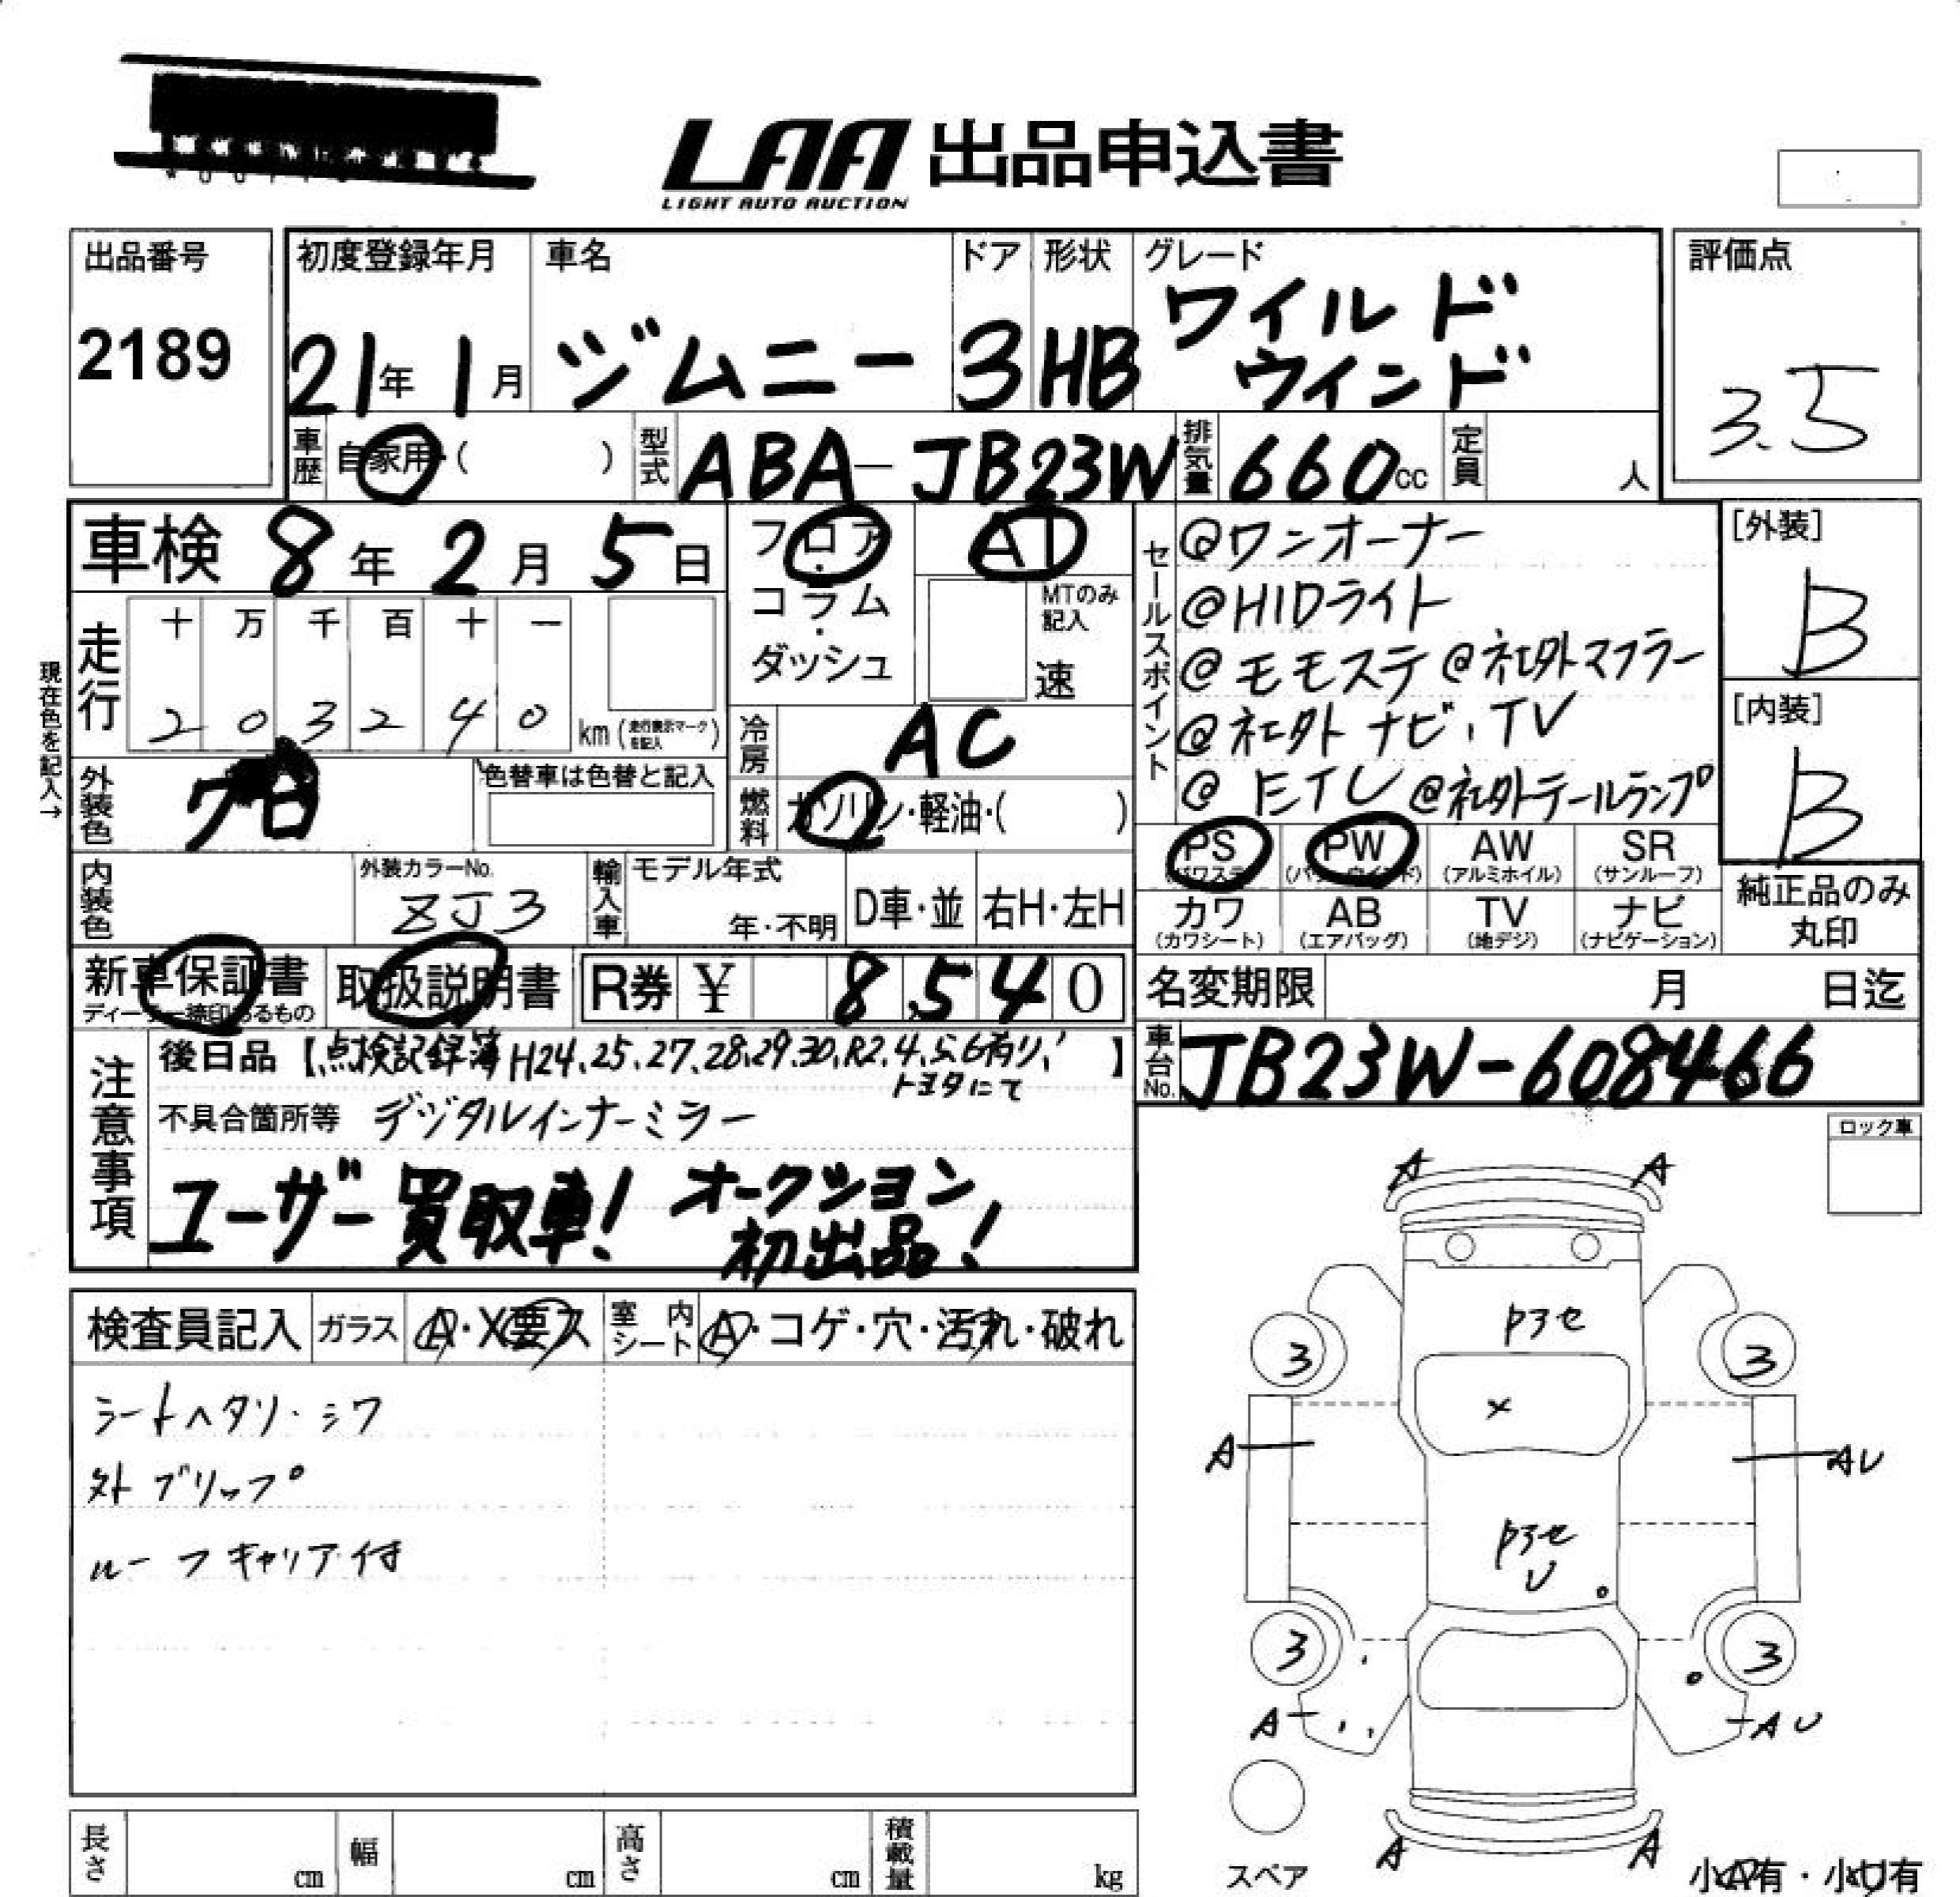 LAA 出品申込書
LIGHT AUTO AUCTION
出品番号
2189
初度登録年月
21年1月
車名
ジムニー
ドア
3
形状
HB
グレード
ワイルド
ウインド
評価点
3.5
車歴
自家用・( )
型式
ABA-JB23W
排気量
660cc
定員
人
車検 8年2月5日
フロア
・
コラム
・
ダッシュ
AT
MTのみ
記入
速
走行
十 万 千 百 十 一
2 0 3 2 4 0
km(走行表示マークを記入)
現在色を記入→
冷房
AC
外装色
クロ
色替車は色替と記入
燃料
ガソリン・軽油・( )
内装色
外装カラーNo.
ZJ3
輸入車
モデル年式
年・不明
D車・並
右H・左H
セールスポイント
@ワンオーナー
@HIDライト
@モモステ @社外マフラー
@社外ナビ・TV
@ETC @社外テールランプ
[外装]
B
[内装]
B
PS
(パワステ)
PW
(パワーウインド)
AW
(アルミホイル)
SR
(サンルーフ)
カワ
(カワシート)
AB
(エアバッグ)
TV
(地デジ)
ナビ
(ナビゲーション)
純正品のみ
丸印
新車保証書
ディーラー捺印あるもの
取扱説明書
R券 ¥ 8,540
名変期限 月 日迄
車台No.
JB23W-608466
注意事項
後日品【点検記録簿H24.25.27.28.29.30.R2.4.5.6有り、】
トヨタにて
不具合箇所等 デジタルインナーミラー
ユーザー買取車! オークション
初出品!
ロック車
検査員記入
ガラス
A・X要ス
室内
シート
A・コゲ・穴・汚れ・破れ
シートヘタリ・シワ
外グリップ
ルーフキャリア付
A A
Pヨセ
3 3
X
A AU
Pヨセ
U
3 3
A AU
A A
スペア
小A有・小U有
長さ cm
幅 cm
高さ cm
積載量 kg